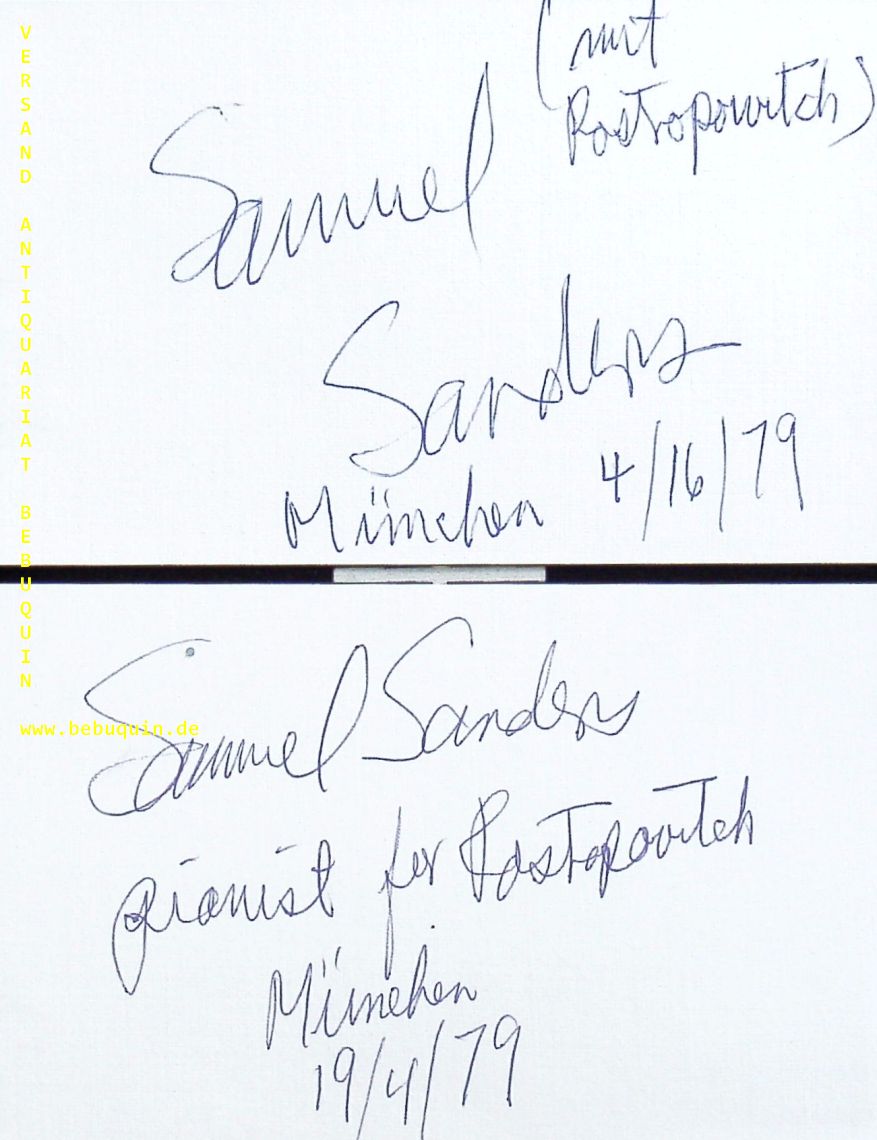 (mit
Rostropowitch)
Samuel
Sanders
München 4/16/79
Samuel Sanders
pianist for Rostropovitch
München
19/4/79
VERSAND ANTIQUARIAT BEBUQUIN
www.bebuquin.de